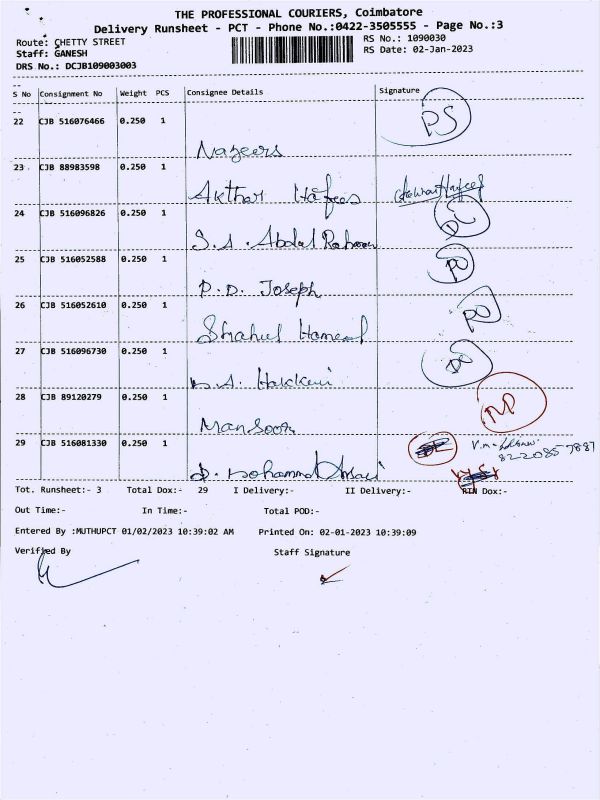 THE PROFESSIONAL COURIERS, Coimbatore
Delivery Runsheet - PCT - Phone No.:0422-3505555 - Page No.:3
Route: CHETTY STREET
RS No.: 1090030
Staff: GANESH
RS Date: 02-Jan-2023
DRS No.: DCJB109003003
S No Consignment No Weight PCS Consignee Details Signature
22 CJB 516076466 0.250 1 PS
Nazeers
23 CJB 88983598 0.250 1
Akthar Hafees
24 CJB 516096826 0.250 1
S.A. Abdul Rahman
25 CJB 516052588 0.250 1 PO
P.D. Joseph
26 CJB 516052610 0.250 1 PO
Shahul Hameed
27 CJB 516096730 0.250 1
A. Hakkeni
28 CJB 89120279 0.250 1 NP
Mansoor
29 CJB 516081330 0.250 1
D. Mohammed Ansari
Tot. Runsheet:- 3 Total Dox:- 29 I Delivery:- II Delivery:- RTN Dox:-
Out Time:- In Time:- Total POD:-
Entered By :MUTHUPCT 01/02/2023 10:39:02 AM Printed On: 02-01-2023 10:39:09
Verified By Staff Signature